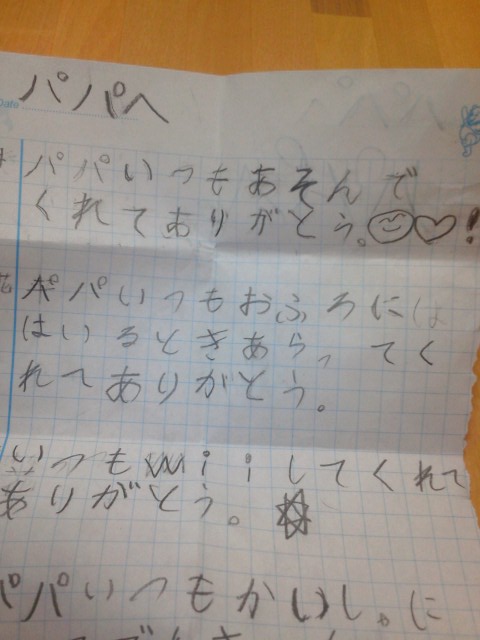 Date
パパへ
パパいつもあそんで
くれてありがとう。!
パパいつもおふろには
はいるときあらってく
れてありがとう。
いつもWiiしてくれて
ありがとう。
パパいつもかいしゃに